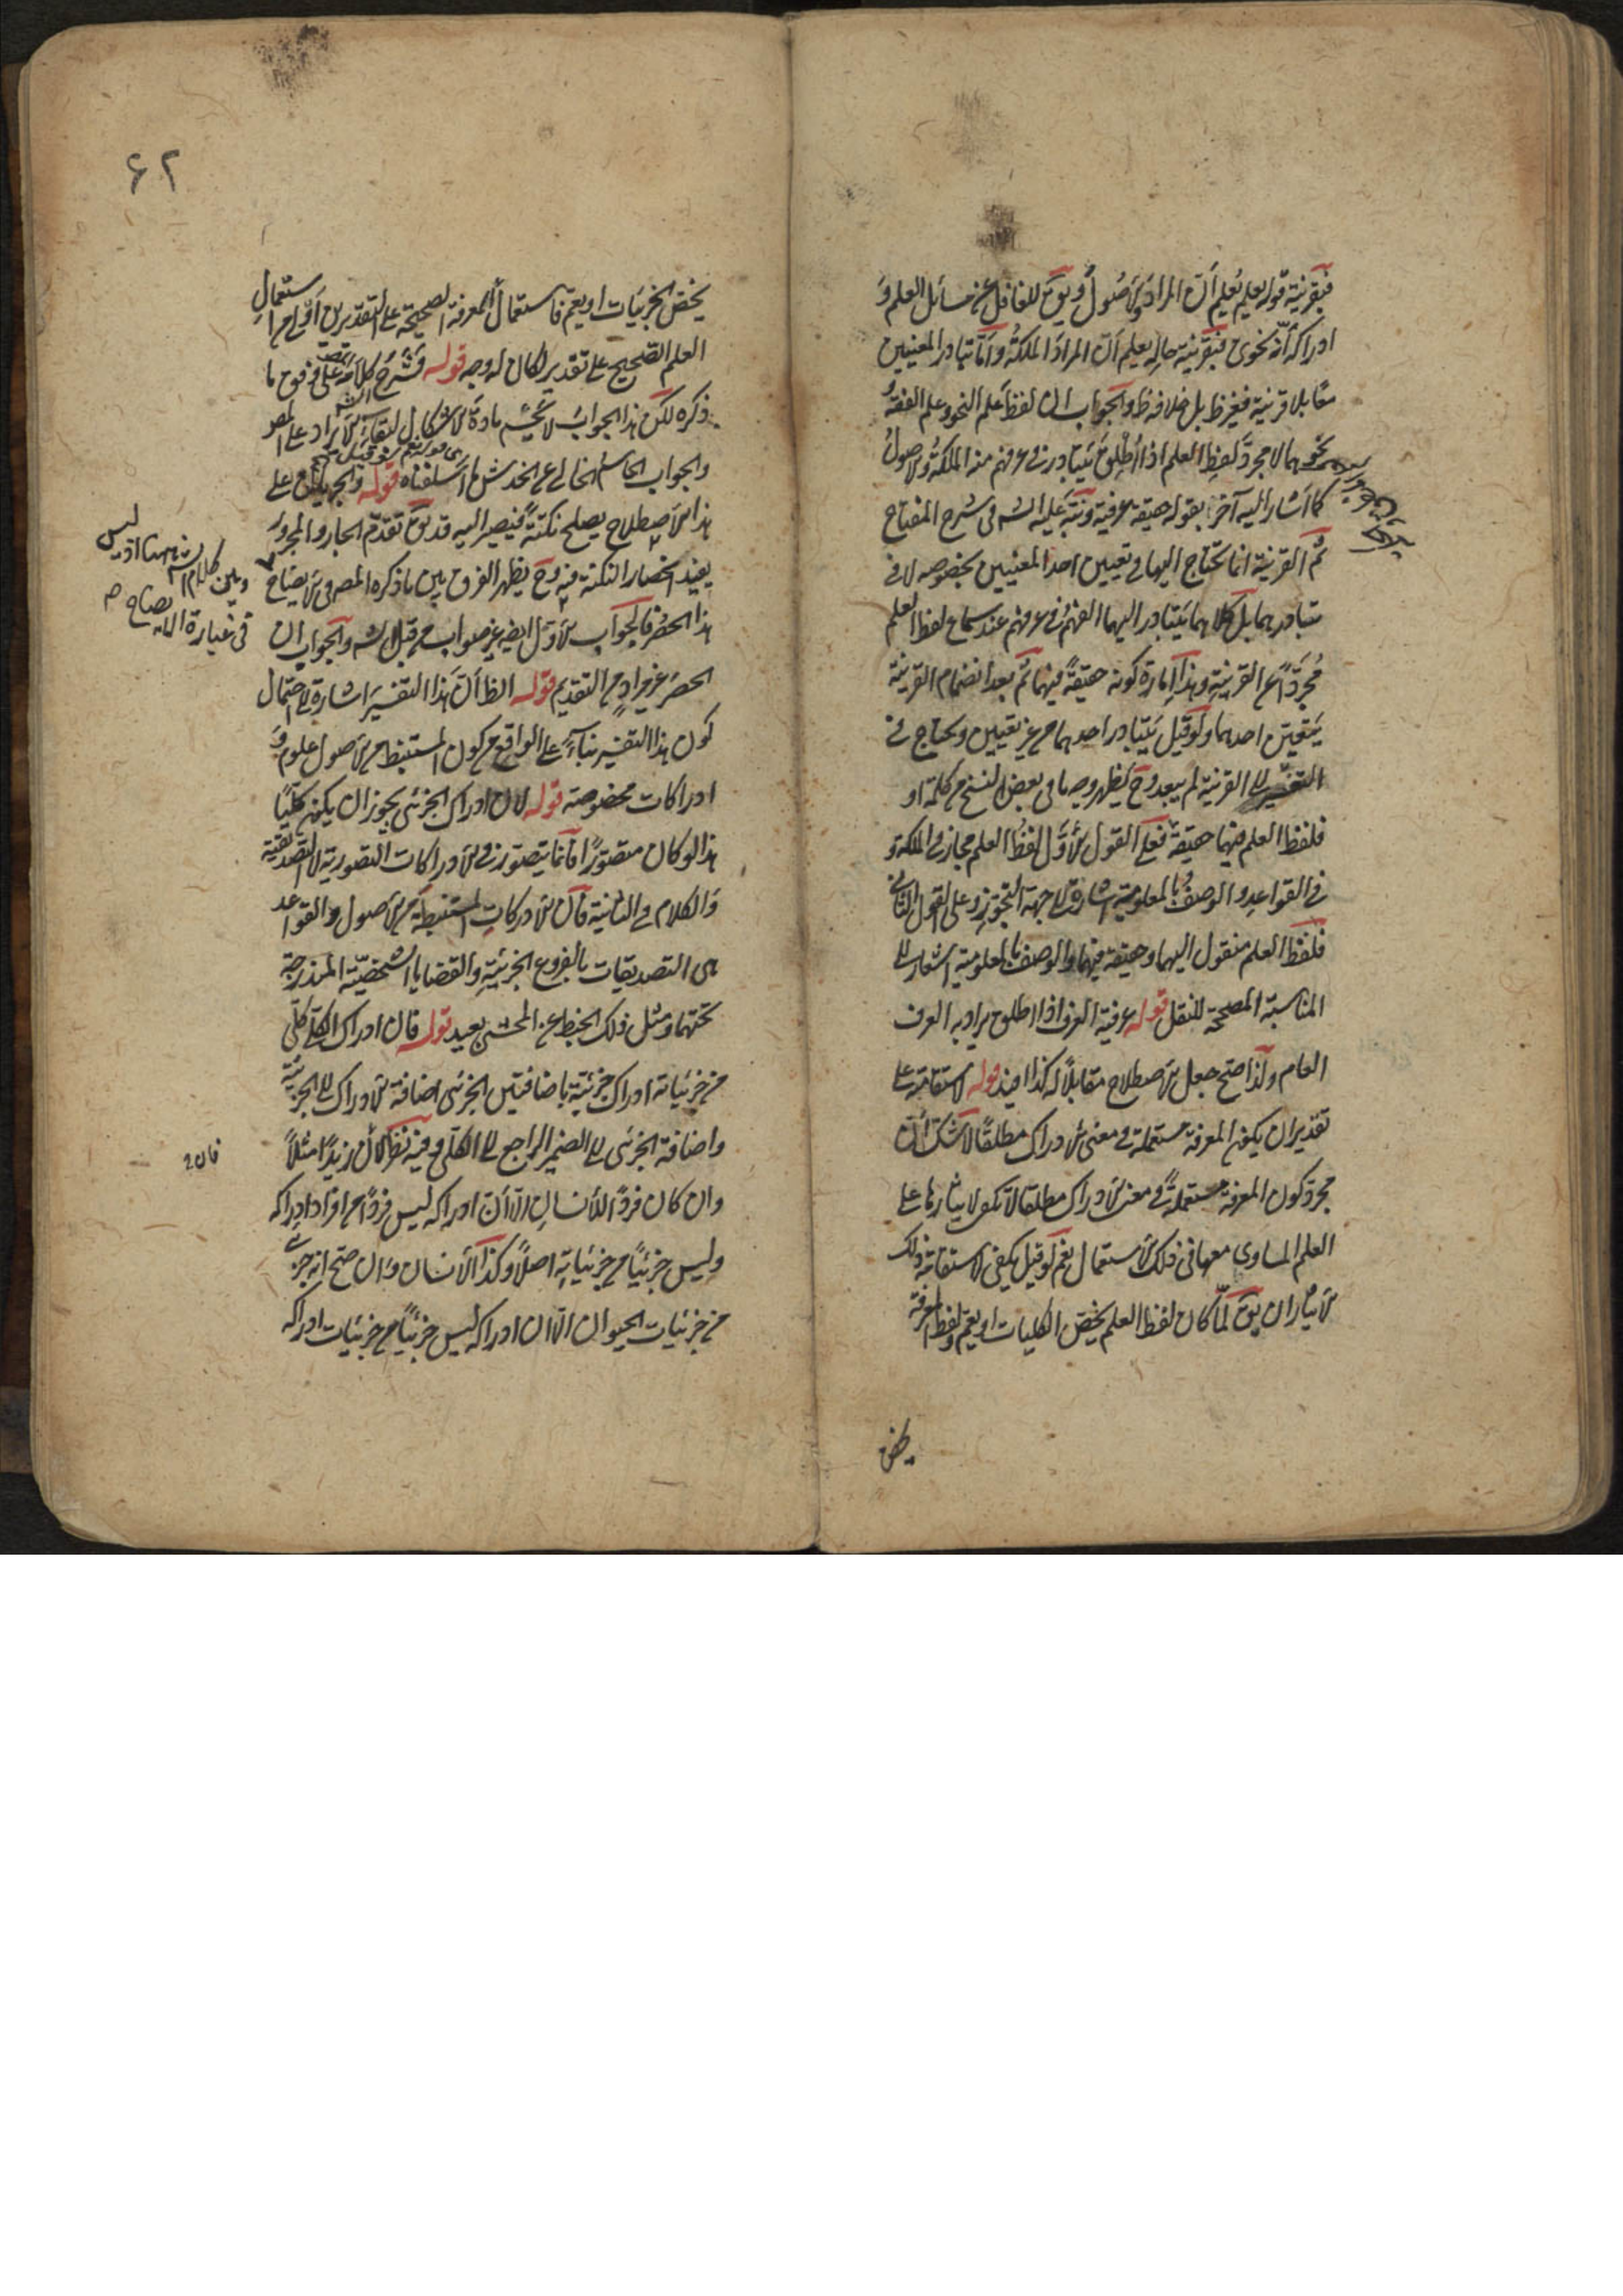 فبقرينة قوله يعلم يُعلم أن المراد الأصول ويق للغافل عن مسائل العلم و
ادراكه أنه نحوى فبقرينة حاله يعلم أن المراد الملكة وأما تبادر المعنيين
معًا بلا قرينة فغير ظ بل خلافه ظ والجواب ان لفظ علم النحو وعلم الفقه
ونحوهما لا مجرد لفظ العلم اذا أطلق يتبادر فى عرفهم منه الملكة والأصول
كما اشار اليه آخرًا بقوله حقيقة عرفية ونبه عليه الش فى شرح المفتاح
ثم القرينة انما تحتاج اليها فى تعيين احد المعنيين بخصوصه لا فى
تبادرهما بل كلاهما يتبادر اليهما الفهم فى عرفهم عند سماع لفظ العلم
مُجردًا عن القرينة وهذا امارة كونه حقيقةً فيهما ثم بعد انضمام القرينة
يتعين احدهما ولو قيل يتبادر احدهما من غير تعيين ويحتاج فى
التعيين الى القرينة لم يبعد وح يظهر وجه ما فى بعض النسخ من كلمة او
فلفظ العلم فيهما حقيقة فعلى القول الأول لفظ العلم مجاز فى الملكة و
فى القواعد والوصف بالمعلومية اشارة الى جهة التجوز وعلى القول الثانى
فلفظ العلم منقول اليهما وحقيقة فيهما والوصف بالمعلومية اشعار الى
المناسبة المصححة للنقل قوله عرفية العرف اذا اطلق يراد به العرف
العام ولذا صح جعل الاصطلاح مقابلًا له كذا افيد قوله لاستقامته على
تقدير ان يكون المعرفة مستعملة فى معنى الادراك مطلقًا لا شك أن
مجرد كون المعرفة مستعملةً فى معنى الادراك مطلقا لا يكون لايثارها على
العلم المساوى معها فى ذلك الاستعمال نعم لو قيل يكفى لاستقامة ذلك
الايثار ان يق لما كان لفظ العلم يخص الكليات او يعم ولفظ المعرفة
يخص
٦٢
يخص الجزئيات او يعم فاستعمال المعرفة الصحيحة على التقديرين أولى من استعمال
العلم الصحيح على تقدير لكان له وجه قوله فشرح كلامه على وفق ما
ذكره لكن هذا الجواب لا يحسم مادة الاشكال لبقاء الايراد على المص
والجواب الحاسم الخالى عن الخدش ما اسلفناه قوله والجريان على
هذا الاصطلاح يصلح نكتةً فيصير اليه قد يق تقدم الجار والمجرور
يفيد انحصار النكتة فيه وح يظهر الفرق بين ما ذكره المص فى الايضاح
هذا الحصر فالجواب الأول ايضا غير صواب من قبل الش والجواب ان
الحصر غير مراد من التقديم قوله الظ أن هذا التفسير اشارة الى احتمال
كون هذا التفسير بناءً على الواقع من كون المستنبط من الاصول علومًا و
ادراكات مخصوصة قوله لان ادراك الجزئى يجوز ان يكون كليًا
هذا لو كان متصورًا فانما يتصور فى الادراكات التصورية لا التصديقية
والكلام فى الثانية فان الادراكات المستنبطة من الاصول والقواعد
هى التصديقات بالفروع الجزئية والقضايا الشخصية المندرجة
تحتها ومثل ذلك الخبط عن المحشى بعيد قوله فان ادراك الكلى كلى
من جزئياته ادراك جزئية باضافتين الجزئى اضافة الادراك الى الجزئية
واضافة الجزئى الى الضمير الراجع الى الكلى وفيه نظر كأن زيدًا مثلًا
وان كان فردًا للأنسان الا أن ادراكه ليس فردًا من افراد ادراكه
وليس جزئيًا من جزئياته اصلًا وكذا الأنسان وان صح انه جزئى
من جزئيات الحيوان الا ان ادراكه ليس جزئيًا من جزئيات ادراكه
وبين كلام الش
فى عبارة الايضاح
فان